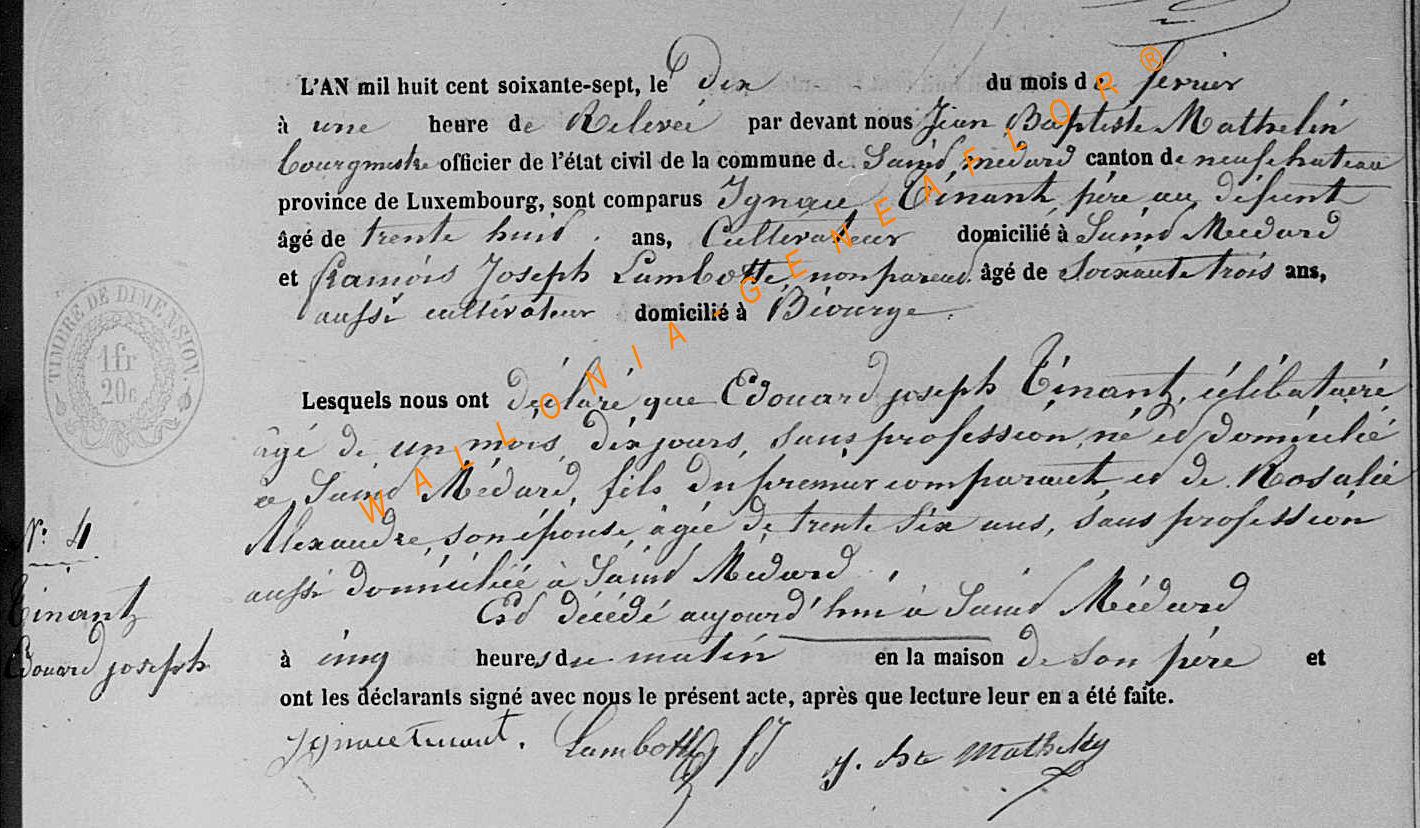 L'AN mil huit cent soixante-sept, le dix du mois de fevrier
à une heure de Relevée par devant nous Jean Baptiste Mathelin
bourgmestre officier de l'état civil de la commune de Saind médard canton de neufchateau
province de Luxembourg, sont comparus Ignace Tinant, père au défunt
âgé de trente huid ans, Cultivateur domicilié à Saind Médard
et François Joseph Lambotte, non parend. âgé de Soixante trois ans,
aussi cultivateur domicilié à Biourge.
TIMBRE DE DIMENSION.
1fr
20c
Lesquels nous ont déclaré que Edouard joseph Tinant, célibataire
âgé de un mois, dix jours, sans profession, né ed domicilié
a Saind Médard, fils du premier comparant ed de Rosalie
Alexandre, son épouse, âgée de trente six ans, sans profession
aussi domiciliée à Saind Médard,
Nº 4
Tinant
Edouard joseph
Esd décédé aujourd'hui à Saind Médard
à cinq heures du matin en la maison de Son père et
ont les déclarants signé avec nous le présent acte, après que lecture leur en a été faite.
Ignace Tinant. Lambotte fJ J. Bte Mathelin
WALLONIA-GENEAFLOR®